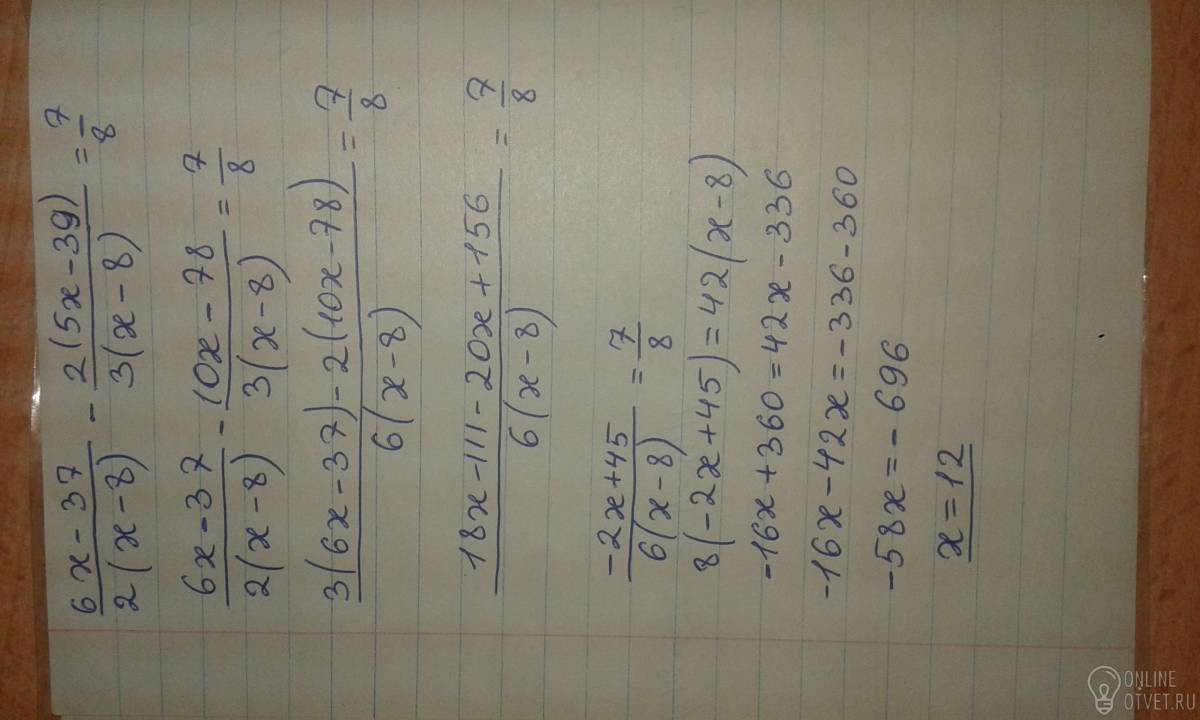 (6x-37)/(2(x-8)) - (2(5x-39))/(3(x-8)) = 7/8
(6x-37)/(2(x-8)) - (10x-78)/(3(x-8)) = 7/8
(3(6x-37)-2(10x-78))/(6(x-8)) = 7/8
(18x-111-20x+156)/(6(x-8)) = 7/8
(-2x+45)/(6(x-8)) = 7/8
8(-2x+45)=42(x-8)
-16x+360=42x-336
-16x-42x=-336-360
-58x=-696
x=12
ONLINE
OTVET.RU